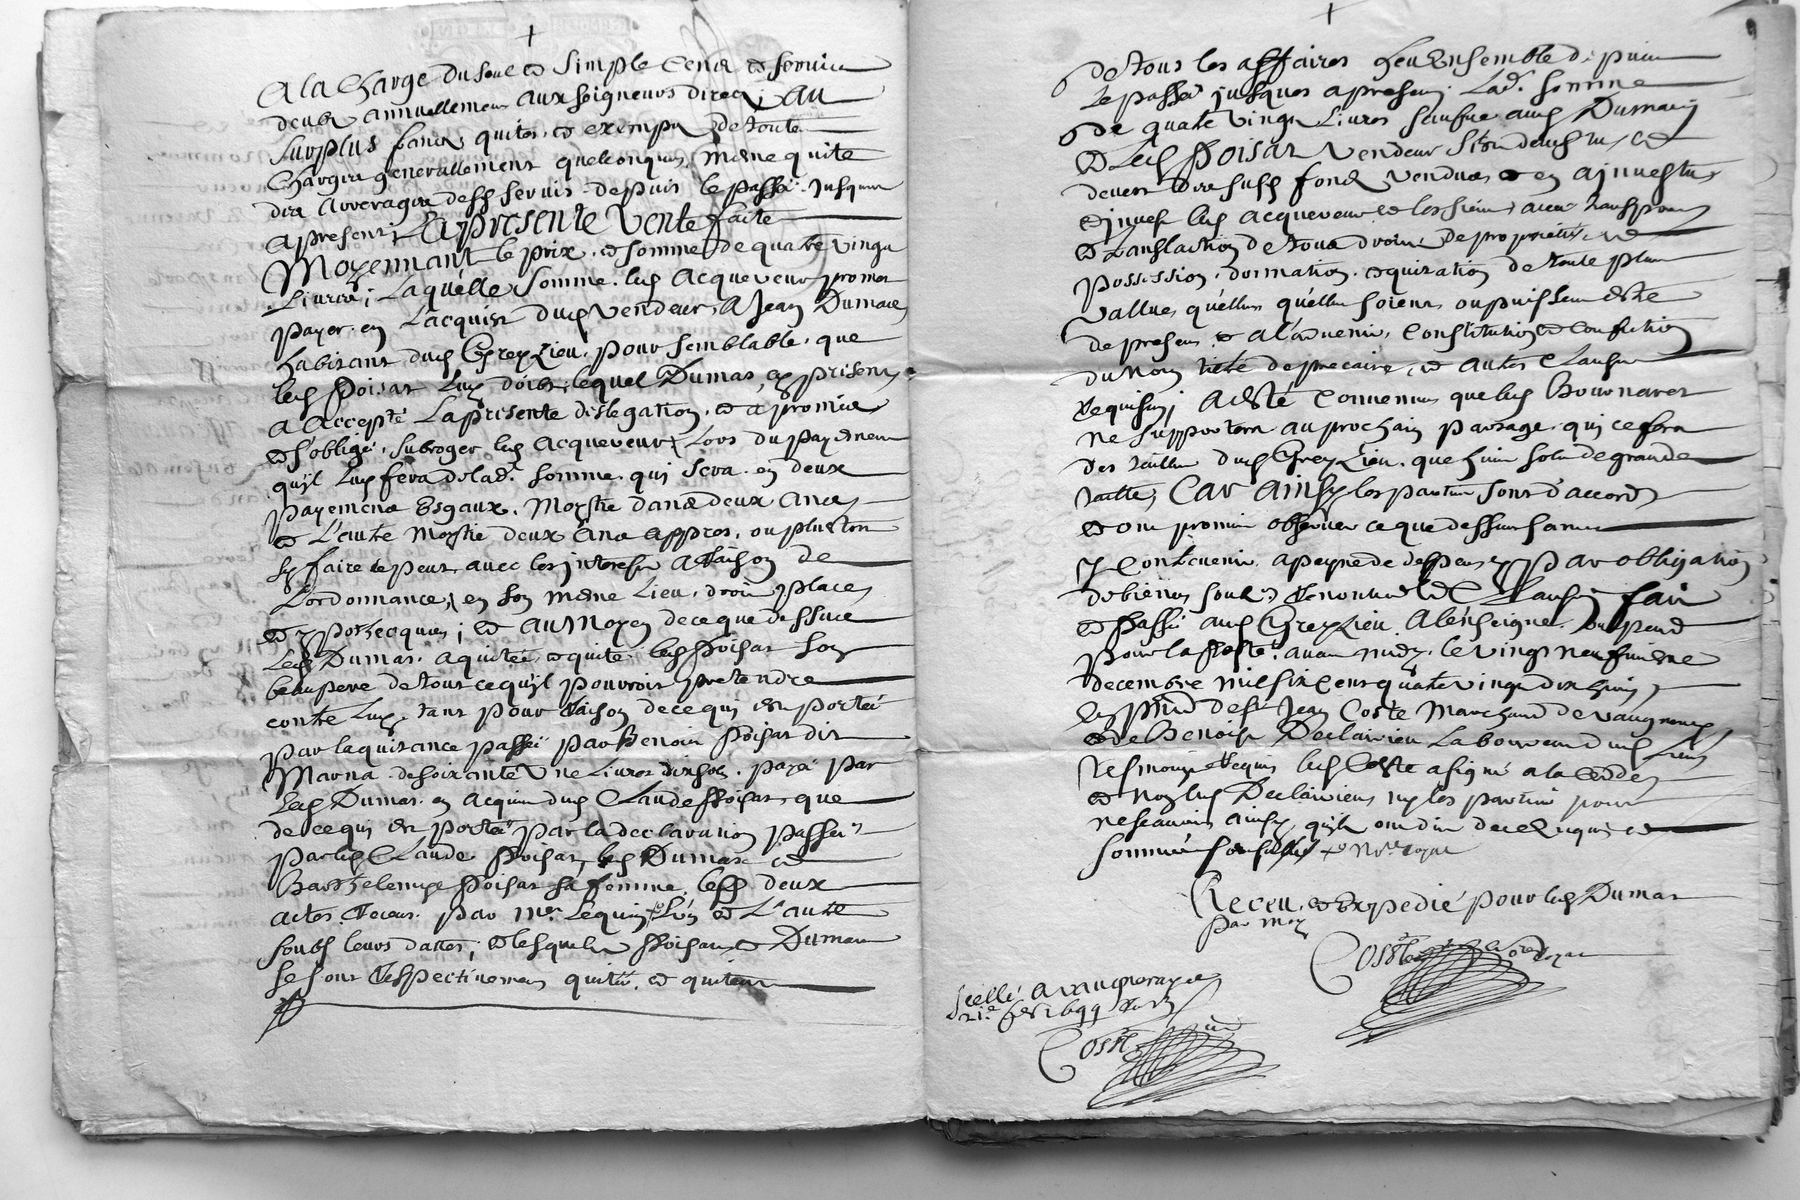 A la Charge du seul et simple Cens et servicie
deubz annuellement aux seigneurs directz, Au
surplus francz, quites, et exempz de toute
Charges generallement quelconques, mesme quite
des arrerages desd servis depuis le passé jusques
apresent, La presente Vente faite
Moyennant le prix et somme de quatre vingts
Livres; Laquelle somme led Acquereur promet
payer en L'acquist dud vendeur, A Jean Dumas
habitant dud Grezlieu, pour semblable, que
led Poisat luy doibt, lequel Dumas, cy present
a Accepté La presente dislegation, et a promis
et s'obligé, subroger led Acquereur Lors du payement
qu'il luy fera de lad. somme, qui sera en deux
payements Esgaux, Moytie dans deux Ans
et L'autre Moytie deux Ans appres, ou plustost
sy faire se peut, avec les jnterestz A Raison de
L'ordonnance, en son mesme Lieu, droit, place,
et ypothecques; et au Moyen de ce que dessus
Led Dumas a quitté et quite led Poisat son
beaupere de tout ce qu'il pourroit pretendre
contre Luy, tant pour Raison de ce qui est porté
par la quitance passée par Benoist Poisat dit
Marna de soixante Une Livres dix sols, payé par
Led Dumas en acquit dud Claude Poisat, que
de ce qui est porté par la declaration passée
par led Claude Poisat, led Dumas et
Barthelemye Poisat sa femme, lesd deux
actes Receus par Me Lequin et L'autre
soubz leurs dattes, et lesquels Poisat et Dumas
se sont Respectivement quitté et quitent
de tous les affaires heu Ensemble depuis
le passé jusques apresent, Lad. somme
de quatre vingt Livres saufve aud Dumas
et Led Poisat Vendeur s'est devestu et
devest de ses susd fondz vendus et en a jnvestu
et jnvest led acquereur et les siens, avec transport
et translaction de tous droits de proprieté et
possession, donnation et quitation de toute plus
vallue, qu'elles qu'elles soient, ou puissent estre
de present et a l'advenir, Constitution et confection
du nom titre de precaire, et autres Clauses
Requises; A esté Convenu que led Bournaret
ne supportera au prochain partage qui ce fera
des tailles dud Grezlieu que huit sols de grande
taille, Car Ainsy les parties sont d'accord
et ont promis observer ce que dessus sans
y Contrevenir, a peyne de despens, par obligation
de biens soubz Renonces et Clauses, fait
et Passé aud Grezlieu A l'enseigne ou pend
pour la Poste, avant midy, le vingt neufviesme
decembre mil six Cent quatre vingt dix huit,
En presence de sr Jean Coste Marchand de Vaugneray
et de Benoist Declavieu Laboureur dud Lieu
tesmoins Requis led Coste a signé a la Cede
et non led Declavieu ny les parties pour
ne scavoir Ainsy qu'ils ont dit de ce Enquis et
sommés
Receu et Expedié pour led Dumas
par moy
Coste
Scellé A vaugneray ce
21e 1699
Coste